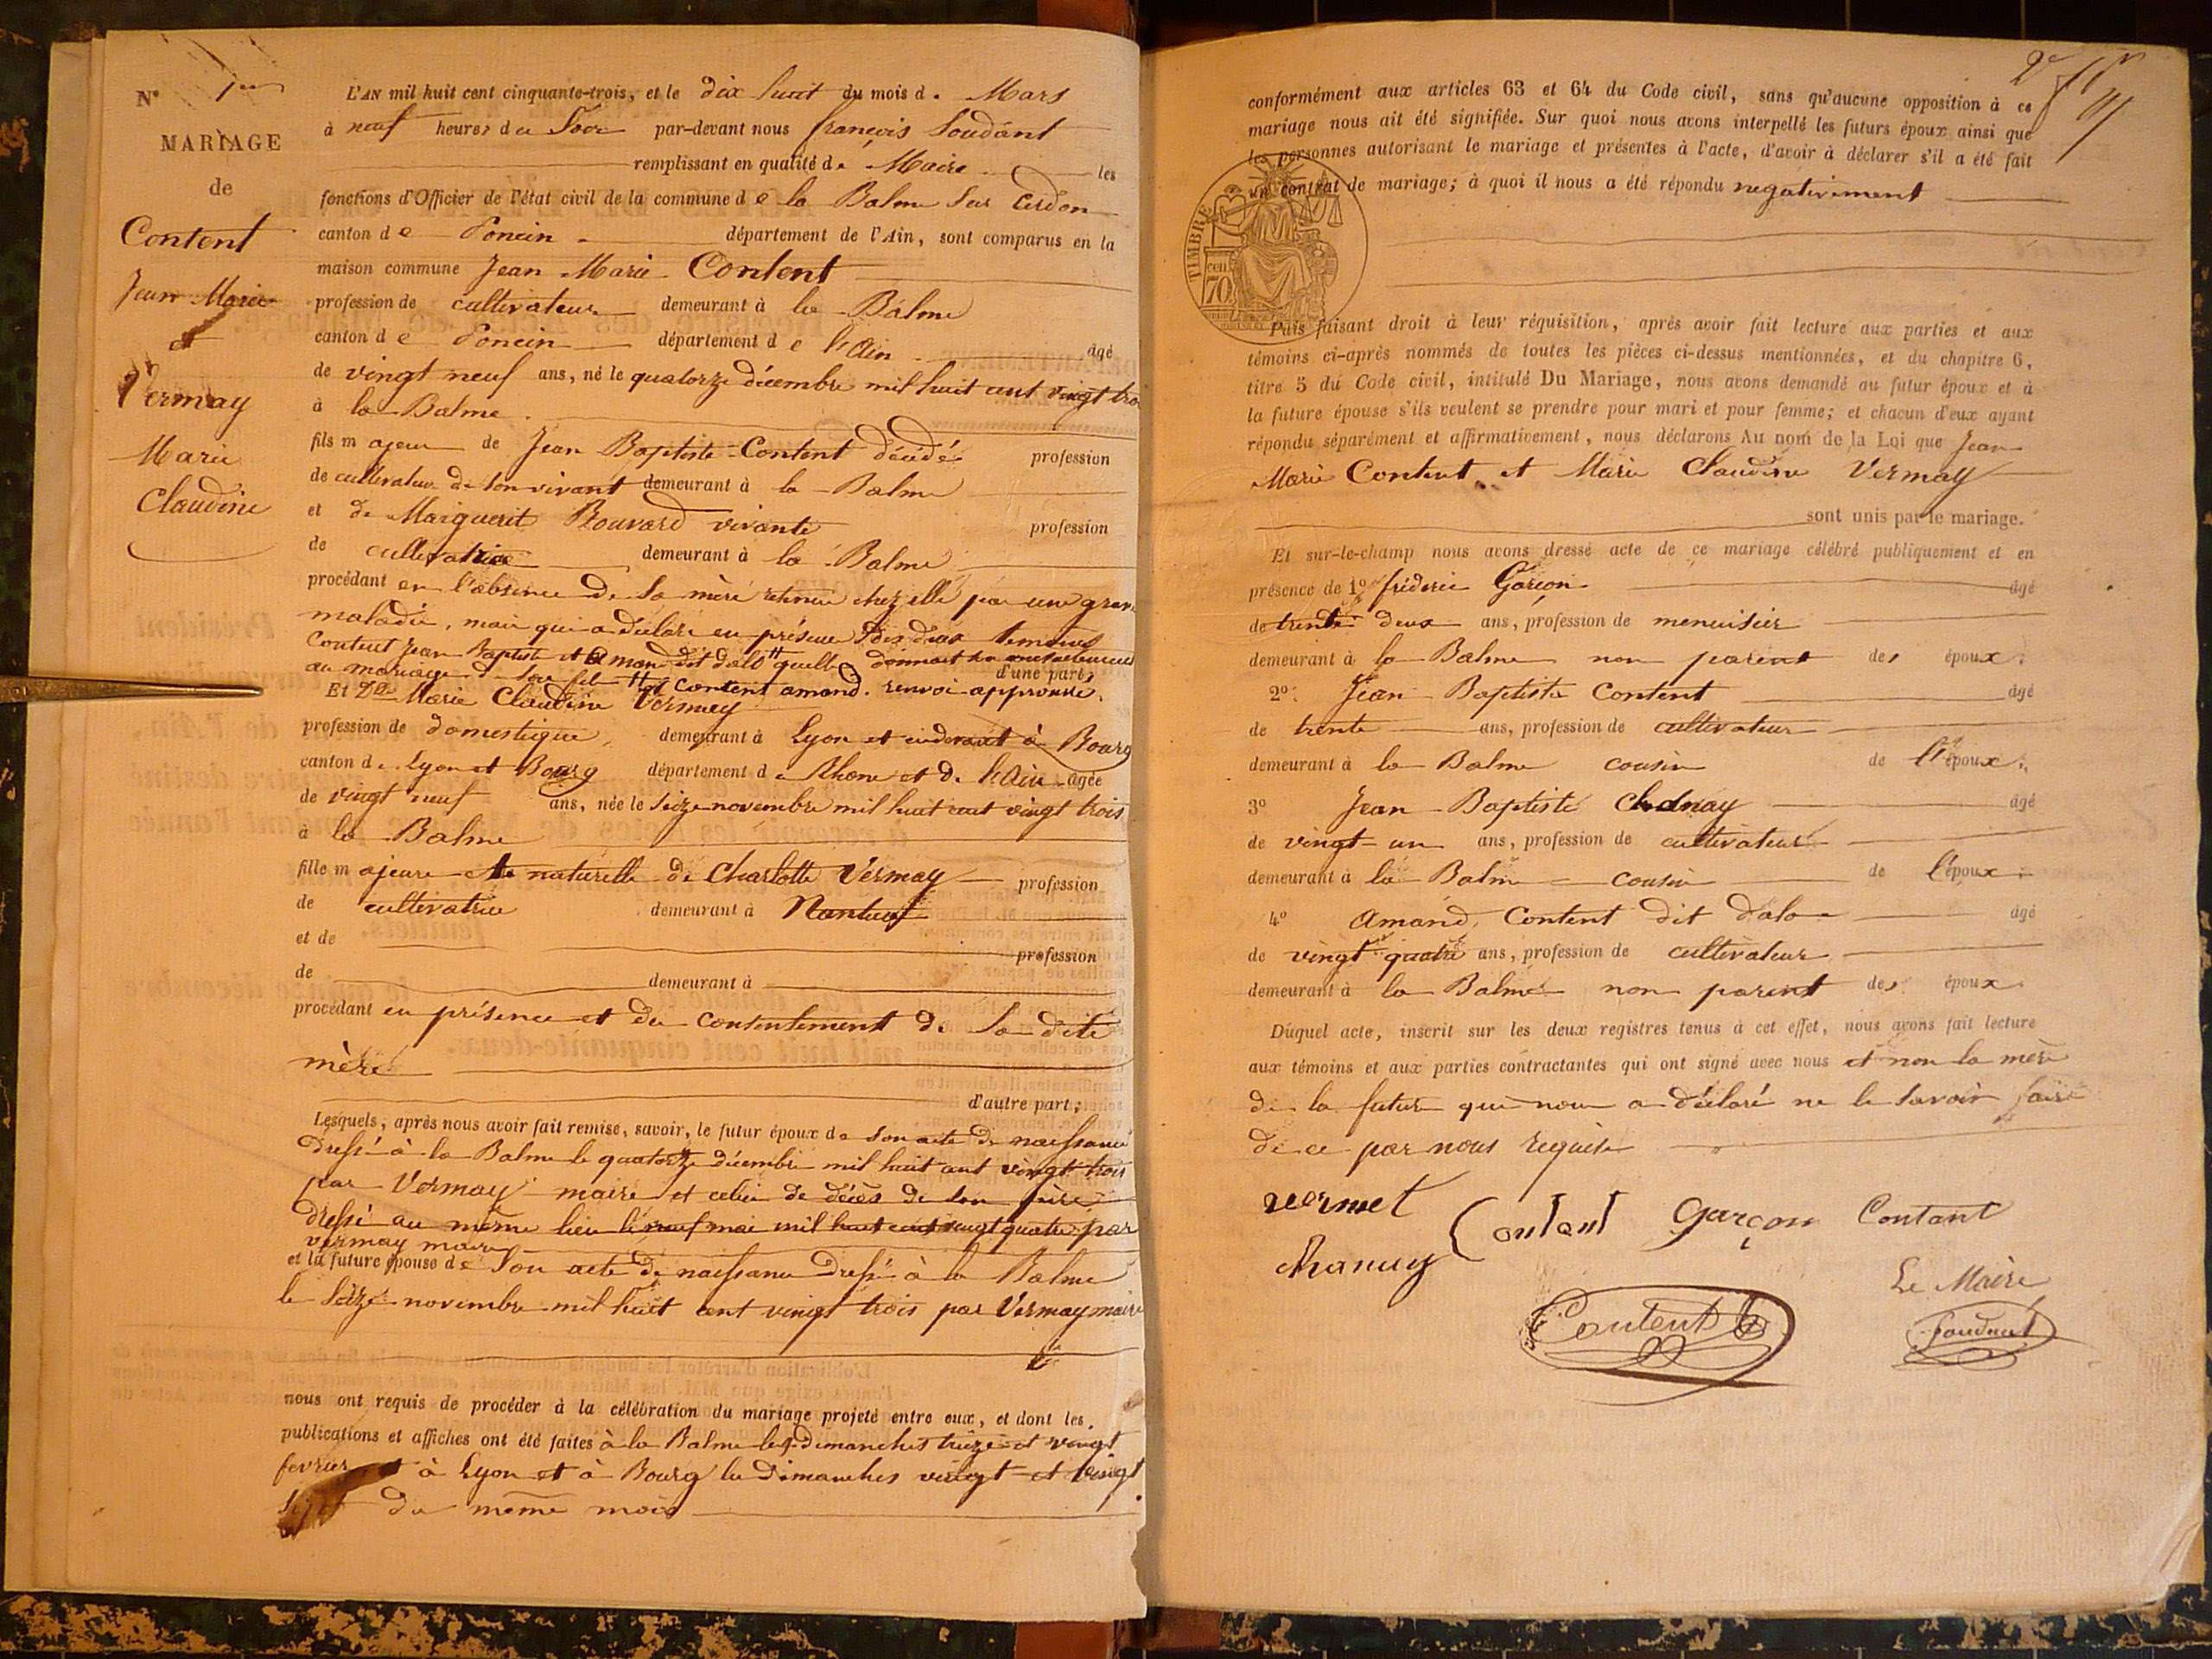 N° 1er
MARIAGE
de
Content
Jean Marie
et
Vermay
Marie
Claudine
L'AN mil huit cent cinquante-trois, et le dix huit du mois d. Mars
à neuf heures du Soir par-devant nous françois Soudant
remplissant en qualité de Maire les
fonctions d'Officier de l'état civil de la commune de la Balme Sur Cerdon
canton de Poncin département de l'Ain, sont comparus en la
maison commune Jean Marie Content
profession de cultivateur demeurant à la Balme
canton de Poncin département de l'Ain âgé
de vingt neuf ans, né le quatorze décembre mil huit cent vingt trois
à la Balme
fils majeur de Jean Baptiste Content décédé profession
de cultivateur de Son vivant demeurant à la Balme
et de Marguerit Bouvard vivante profession
de cultivatrice demeurant à la Balme
procédant en l'absence de Sa mère retenue chez elle par une grave
maladie, mais qui a déclaré en présence des deux temoins
Content Jean Baptiste et Amand dit dalo quelle donnait son consentement
au mariage de Son fils et Content amand. renvoi approuvé. d'une part;
Et Dlle Marie Claudine Vermay
profession de domestique, demeurant à Lyon et cidevant à Bourg
canton de Lyon et Bourg département de Rhone et de l'Ain âgée
de vingt neuf ans, née le Seize novembre mil huit cent vingt trois
à la Balme
fille majeure et naturelle de Charlotte Vermay profession
de cultivatrice demeurant à Nantua
et de profession
de demeurant à
procédant en présence et du consentement de Sa dite
mère
d'autre part;
Lesquels, après nous avoir fait remise, savoir, le futur époux de Son acte de naissance
dressé à la Balme le quatorze décembre mil huit cent vingt trois
par Vermay maire et celui de décès de Son père
dressé au même lieu le neuf mai mil huit cent vingt quatre par
vermay maire
et la future épouse de Son acte de naissance dressé à la Balme
le Seize novembre mil huit cent vingt trois par Vermay maire
nous ont requis de procéder à la célébration du mariage projeté entre eux, et dont les
publications et affiches ont été faites à la Balme les dimanches treize et vingt
fevrier et à Lyon et à Bourg les Dimanches vingt et vingt
Sept du même mois
conformément aux articles 63 et 64 du Code civil, sans qu'aucune opposition à ce
mariage nous ait été signifiée. Sur quoi nous avons interpellé les futurs époux ainsi que
les personnes autorisant le mariage et présentes à l'acte, d'avoir à déclarer s'il a été fait
un contrat de mariage; à quoi il nous a été répondu negativement
TIMBRE
cen
70
Puis faisant droit à leur réquisition, après avoir fait lecture aux parties et aux
témoins ci-après nommés de toutes les pièces ci-dessus mentionnées, et du chapitre 6,
titre 5 du Code civil, intitulé Du Mariage, nous avons demandé au futur époux et à
la future épouse s'ils veulent se prendre pour mari et pour femme; et chacun d'eux ayant
répondu séparément et affirmativement, nous déclarons Au nom de la Loi que Jean
Marie Content et Marie Claudine Vermay
sont unis par le mariage.
Et sur-le-champ nous avons dressé acte de ce mariage célébré publiquement et en
présence de 1° fréderic Garçon âgé
de trente deux ans, profession de menuisier
demeurant à la Balme non parent des époux.
2° Jean Baptiste Content âgé
de trente ans, profession de cultivateur
demeurant à la Balme cousin de l'époux;
3° Jean Baptiste Chanay âgé
de vingt un ans, profession de cultivateur
demeurant à la Balme cousin de l'époux;
4° Amand Content dit dalo âgé
de vingt quatre ans, profession de cultivateur
demeurant à la Balme non parent des époux.
Duquel acte, inscrit sur les deux registres tenus à cet effet, nous avons fait lecture
aux témoins et aux parties contractantes qui ont signé avec nous et non la mère
de la future qui nous a déclaré ne le Savoir faire
de ce par nous requise
vermet Contant Garçon Contant
Chanay
Le Maire
Content Soudant